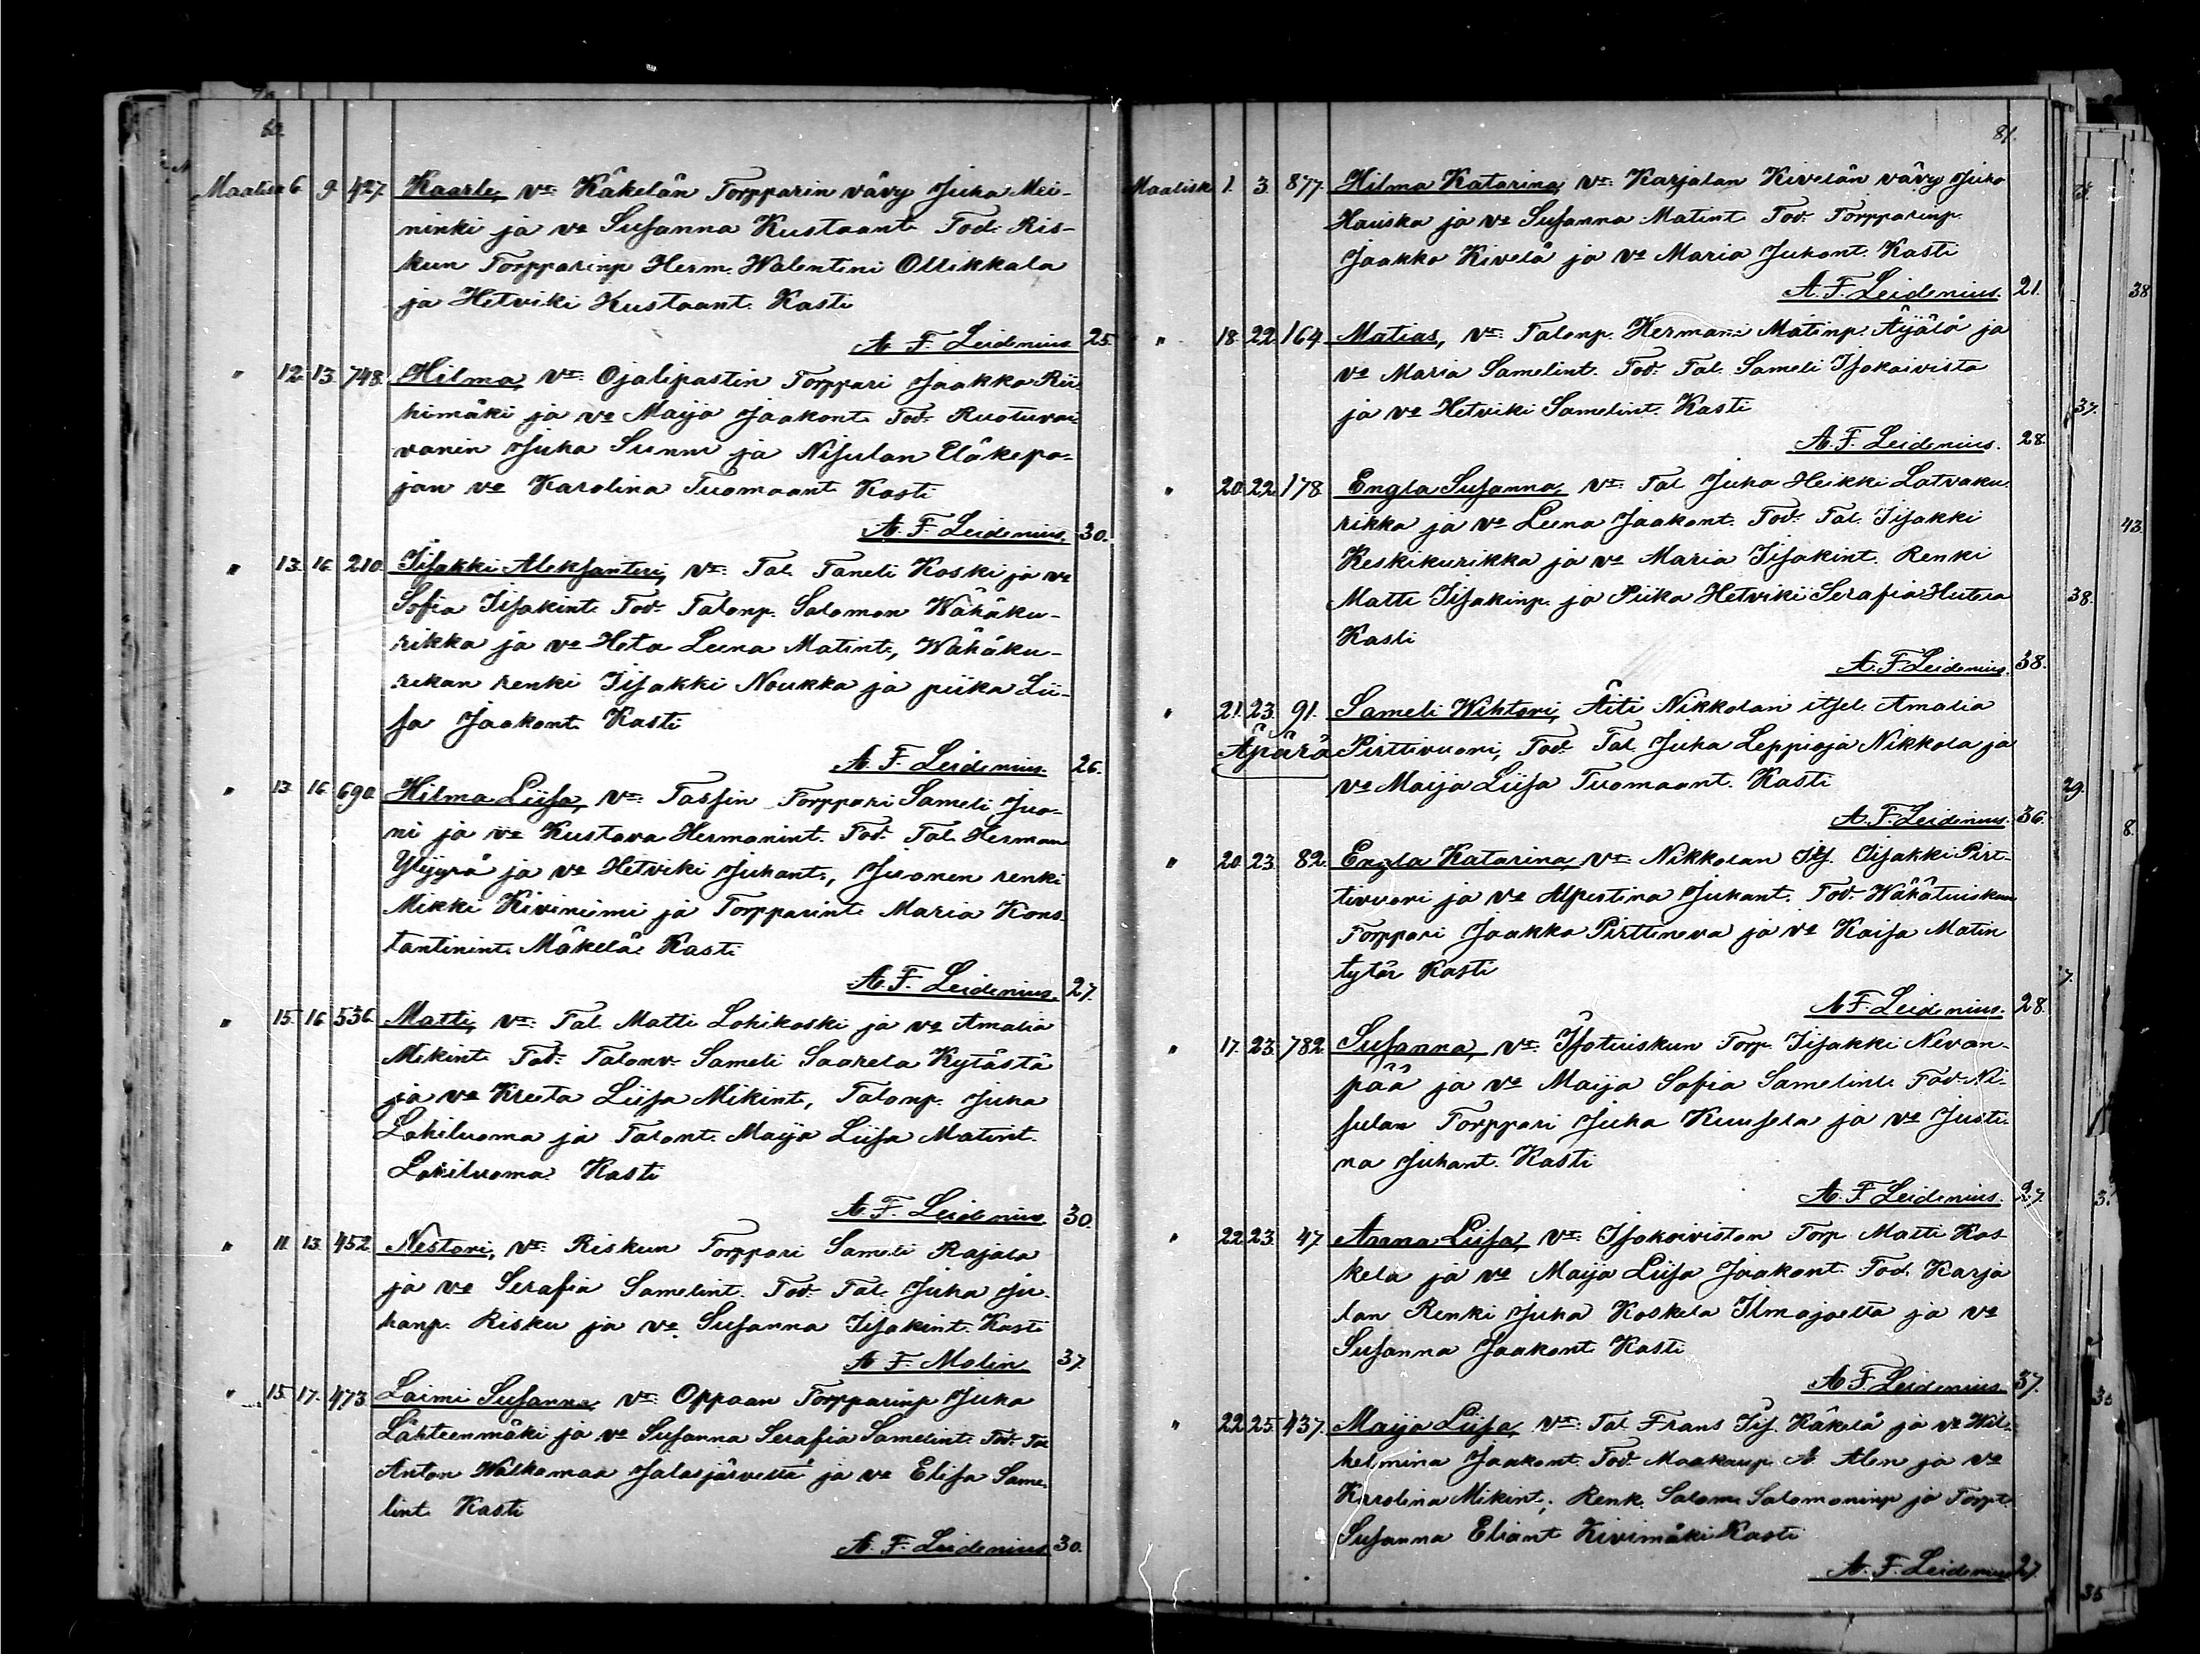 Maalisk 6. 9. 427. Kaarle, vt: Käkelän Torpparin vävy Juha Mei-
ninki ja vo Susanna Kustaant. Tod: Ris-
kun Torpparinp Herm. Walentini Ollikkala
ja Hetviki Kustaant. Kasti
A. F. Leidenius. 25.
" 12. 13. 748. Hilma, vt: Ojalipastin Torppari Jaakko Rii
himäki ja vo Maija Jaakont. Tod: Ruotuvai
vanin Juha Sunni ja Nisulan Eläkepo-
jan vo Karolina Tuomaant. Kasti
A. F. Leidenius. 30.
" 13. 16. 210. Iisakki Aleksanteri, vt: Tal. Taneli Koski ja vo
Sofia Iisakint. Tod: Talonp. Salomon Wähäku-
rikka ja vo Heta Leena Matint., Wähäku-
rikan renki Iisakki Noukka ja piika Lii-
sa Jaakont. Kasti
A. F. Leidenius. 26.
" 13. 16. 690. Hilma Liisa, vt: Tassin Torppari Sameli Juo-
ni ja vo Kustava Hermanint. Tod: Tal. Herman
Ylijyrä ja vo Hetviki Juhant., Juonen renki
Mikki Kiviniemi ja Torpparint. Maria Kons-
tantinint. Mäkelä. Kasti
A. F. Leidenius. 27.
" 15. 16. 536. Matti, vt: Tal. Matti Lohikoski ja vo Amalia
Mikint. Tod: Talonv. Sameli Saarela Kytästä
ja vo Kreeta Liisa Mikint., Talonp. Juha
Lohiluoma ja Talont. Maija Liisa Matint.
Lohiluoma. Kasti
A. F. Leidenius 30.
" 11. 13. 452. Nestori, vt: Riskun Torppari Sameli Rajala
ja vo Serafia Samelint. Tod: Tal. Juha Ju-
hanp. Risku ja vo. Susanna Iisakint. Kasti
A. F. Molin 37.
" 15. 17. 473. Laimi Susanna, vt: Oppaan Torpparinp Juha
Lähteenmäki ja vo Susanna Serafia Samelint. Tod: Tal
Anton Walkamaa Jalasjärveltä ja vo Elisa Same-
lint. Kasti
A. F. Leidenius 30.
81.
Maalisk 1. 3. 877. Hilma Katarina, vt: Karjalan Kivelän vävy Juho
Hauska ja vo Susanna Matint. Tod: Torpparinp.
Jaakko Kivelä ja vo Maria Juhont. Kasti
A. F. Leidenius. 21.
" 18. 22. 164. Matias, vt: Talonp. Hermani Matinp. Äijälä ja
vo Maria Samelint. Tod: Tal. Sameli Isokoivisto
ja vo Hetviki Samelint. Kasti
A. F. Leidenius. 28.
" 20. 22. 178. Engla Susanna, vt: Tal Juha Heikki Latvaku
rikka ja vo Leena Jaakont. Tod: Tal. Iisakki
Keskikurikka ja vo Maria Iisakint. Renki
Matti Iisakinp. ja Piika Hetviki Serafia
Kasti
A. F. Leidenius. 38.
" 21. 23. 91. Sameli Wihtori, Äiti Nikkolan itsel. Amalia
Äpärä Pirttivuori, Tod: Tal. Juha Leppioja Nikkola ja
vo Maija Liisa Tuomaant. Kasti
A. F. Leidenius. 36.
" 20. 23. 82. Engla Katarina, vt: Nikkolan Its. Iisakki Pirt-
tivuori ja vo Alpertina Juhant. Tod: Wähätuiskun
Torppari Jaakko Pirttineva ja vo Kaisa Matin
tytär Kasti
A. F. Leidenius. 28.
" 17. 23. 782. Susanna, vt: Isotuiskun Torp. Iisakki Nevan-
pää ja vo Maija Sofia Samelint. Tod: Ni-
sulan Torppari Juha Kuusela ja vo Justi-
na Juhant. Kasti
A. F. Leidenius. 27.
" 22. 23. 47. Anna Liisa, vt: Isokoiviston Torp. Matti Kos
kela ja vo Maija Liisa Jaakont. Tod. Karja
lan Renki Juha Koskela Ilmajoelta ja vo
Susanna Jaakont. Kasti
A. F. Leidenius 37.
" 22. 25. 437. Maija Liisa, vt: Tal. Frans Iis. Käkelä ja vo Wil-
helmina Jaakont. Tod. Maakaup. A. Alen ja vo
Karolina Mikint., Renk. Salom. Salomoninp ja Torpt.
Susanna Eliant. Kivimäki Kasti
A. F. Leidenius 27.